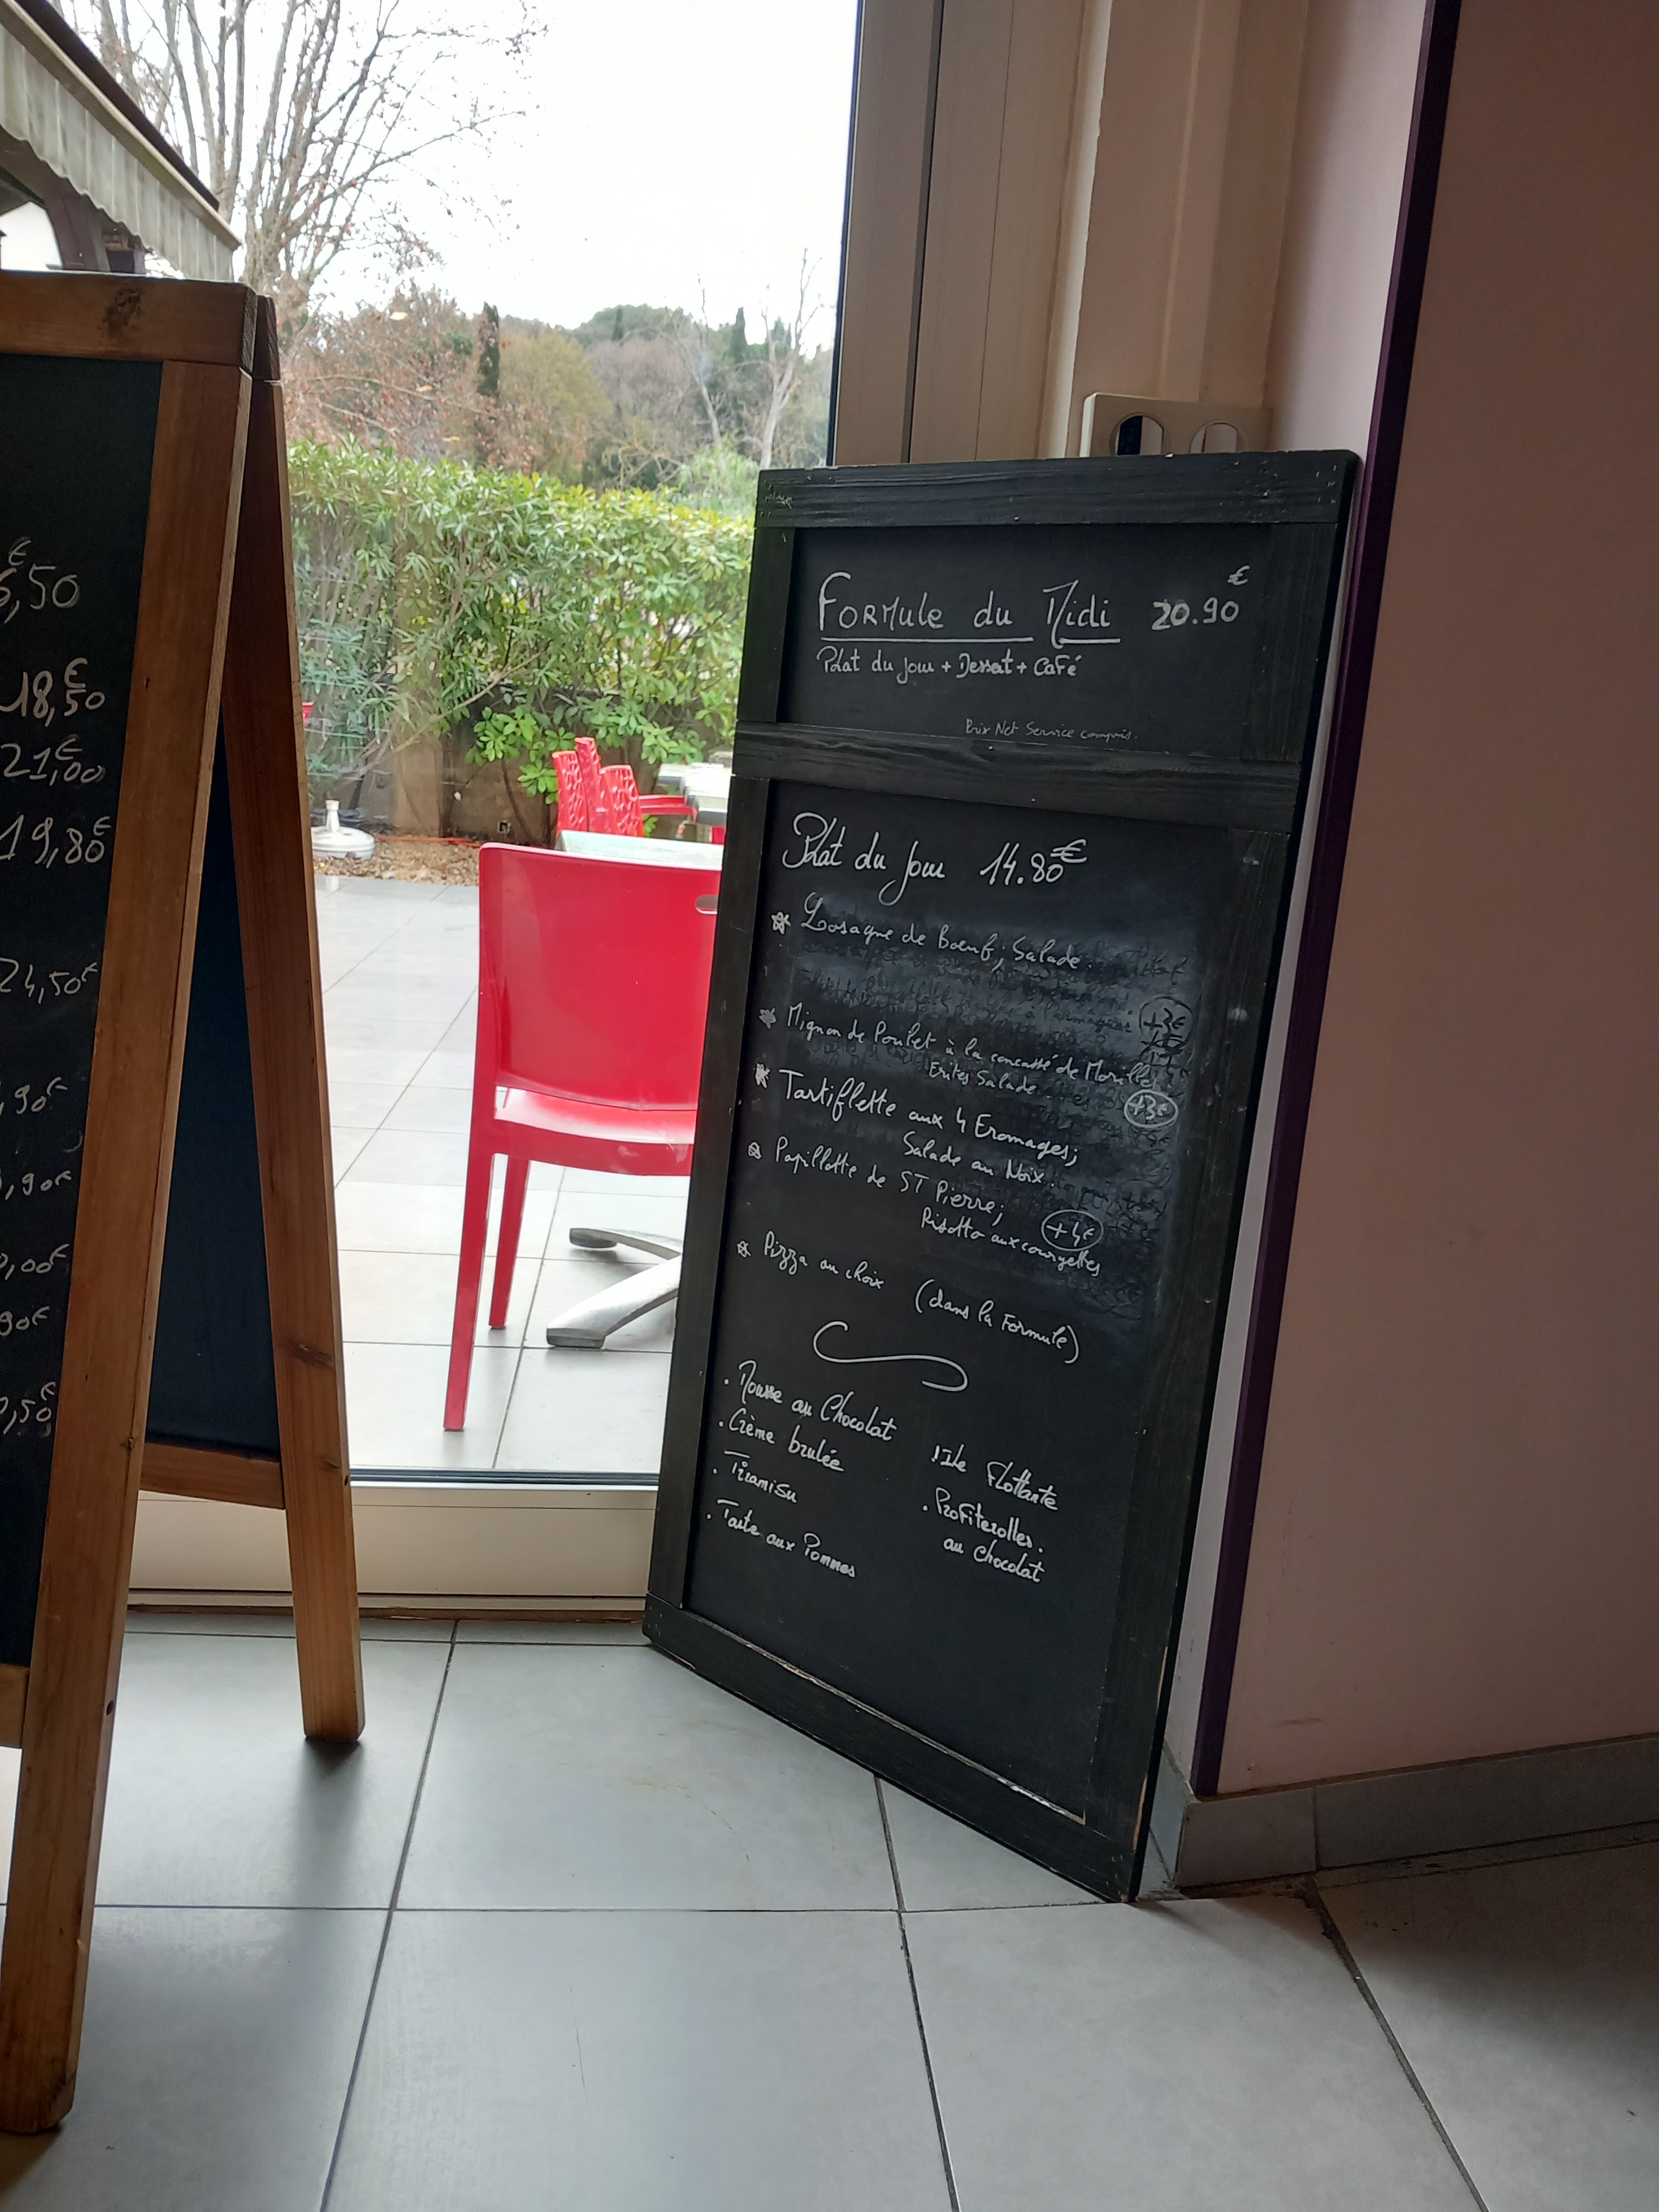 6,50€
18,50€
21,00€
19,80€
24,50€
,90€
,90€
,00€
90€
,50€
Formule du Midi 20.90€
Plat du jour + Dessert + Café
Prix Net Service compris.
Plat du jour 14.80€
Lasagne de Bœuf; Salade.
+3€
Mignon de Poulet à la concassé de Morilles
Frites Salade
+3€
Tartiflette aux 4 Fromages;
Salade au Noix.
Papillotte de ST Pierre;
+4€
Risotto aux courgettes
Pizza au choix (dans la Formule)
. Mousse au Chocolat
. Crème brulée
. Tiramisu
. Tarte aux Pommes
. Ile Flottante
. Profiterolles.
au chocolat